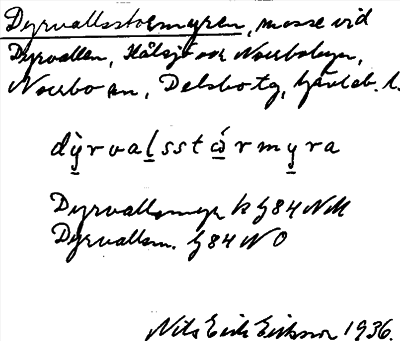 Dyrvallsstormyren, mosse vid
Dyrvallen, Hålsjö och Norrbobyn,
Norrbo sn, Delsbo tg, Gävleb. l.
dỳrvalsstórmyra
Dyrvallsmyr k G84 NM
Dyrvallsm. G84 NO
Nils Erik Eriksson 1936.